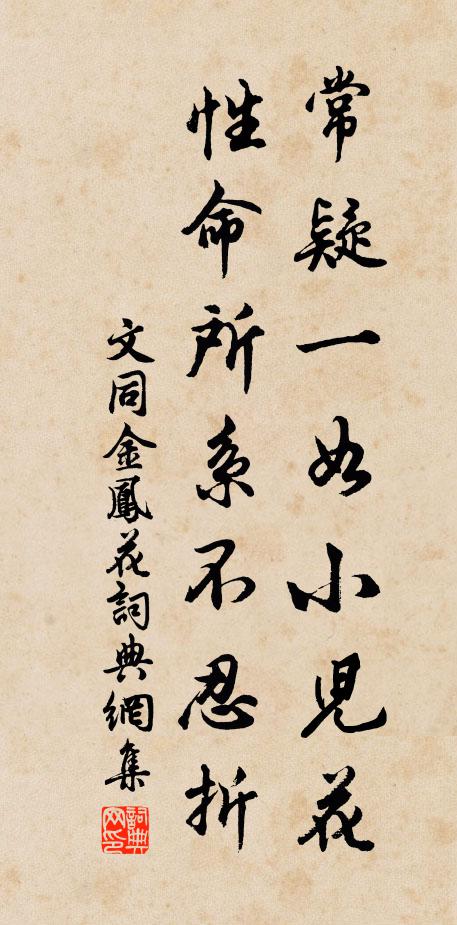 常疑一如小児花
性命所系不忍折
文同金鳳花詞典網集
詞典网印